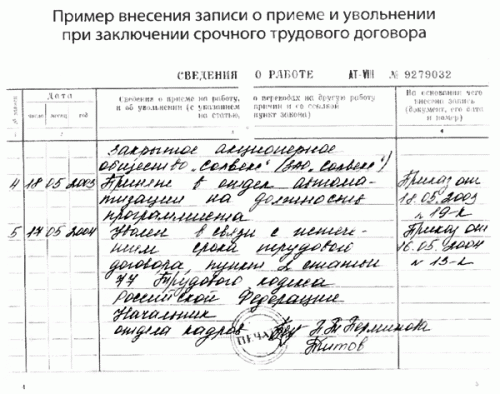 Пример внесения записи о приеме и увольнении
при заключении срочного трудового договора
СВЕДЕНИЯ О РАБОТЕ АТ-VIII № 9279032
№ записи
Дата
число месяц год
Сведения о приеме на работу, о переводах на другую работу
и об увольнении (с указанием причин и со ссылкой
на статью, пункт закона)
На основании чего
внесена запись
(документ, его дата
и номер)
1 2 3 4
Закрытое акционерное
общество "Солвекс" (ЗАО "Солвекс")
4 18 05 2003 Принят в отдел автома- Приказ от
тизации на должность 18.05.2003
программиста № 19-к
5 17 05 2004 Уволен в связи с истече- Приказ от
нием срока трудового 16.05.2004
договора, пункт 2 статьи № 13-к
77 Трудового кодекса
Российской Федерации
Начальник
отдела кадров Н.Т. Перминова
ПЕЧАТЬ Титов